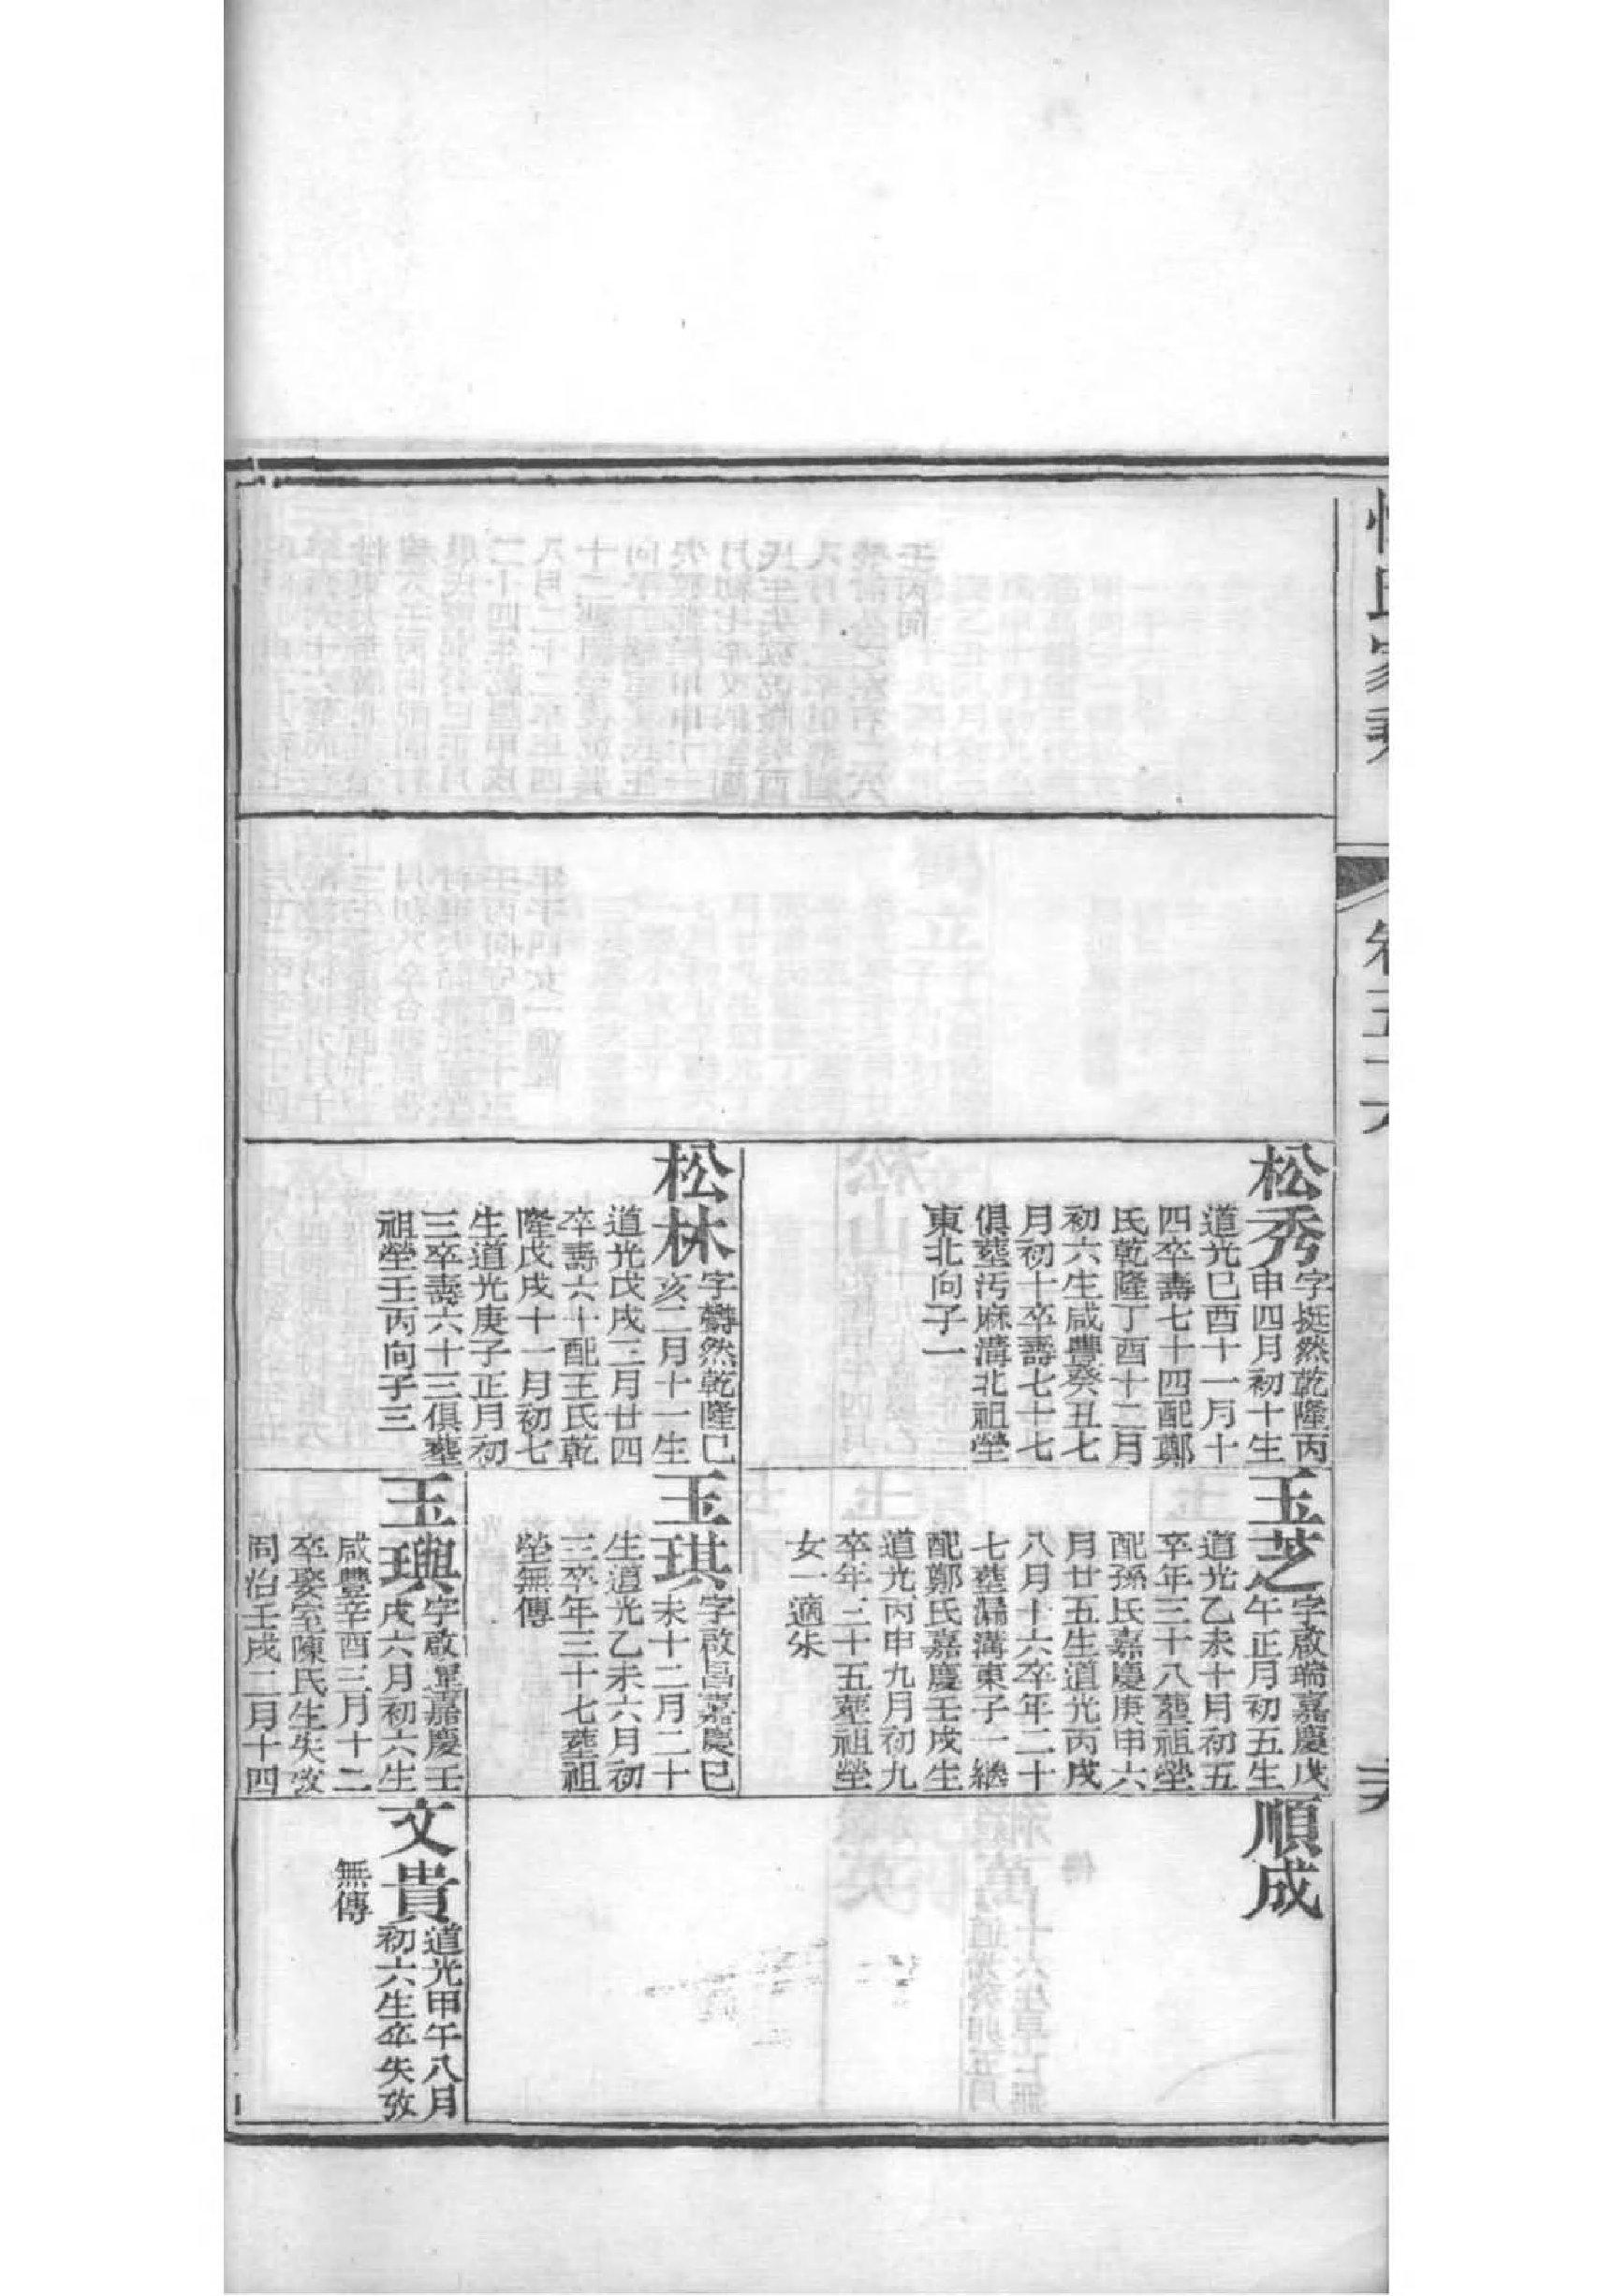 惲氏家乘
卷五十六
松秀
字挺然乾隆丙
申四月初十生
道光己酉十一月十
四卒壽七十四配鄭
氏乾隆丁酉十二月
初六生咸豐癸丑七
月初十卒壽七十七
俱塟汚麻溝北祖塋
東北向子一
松林
字欝然乾隆己
亥二月十一生
道光戊戌三月廿四
卒壽六十配王氏乾
隆戊戌十一月初七
生道光庚子正月初
三卒壽六十三俱塟
祖塋壬丙向子三
玉芝
字啟瑞嘉慶戊
午正月初五生
道光乙未十月初五
卒年三十八塟祖塋
配孫氏嘉慶庚申六
月廿五生道光丙戌
八月十六卒年二十
七塟漏溝東子一繼
配鄭氏嘉慶壬戌生
道光丙申九月初九
卒年三十五塟祖塋
女一適朱
玉琪
字啟昌嘉慶己
未十二月二十
生道光乙未六月初
三卒年三十七塟祖
塋無傳
玉璵
字啟 嘉慶壬
戌六月初六生
咸豐辛酉三月十二
卒娶室陳氏生失攷
同治壬戌二月十四
順成
文貴
道光甲午八月
初六生卒失攷
無傳